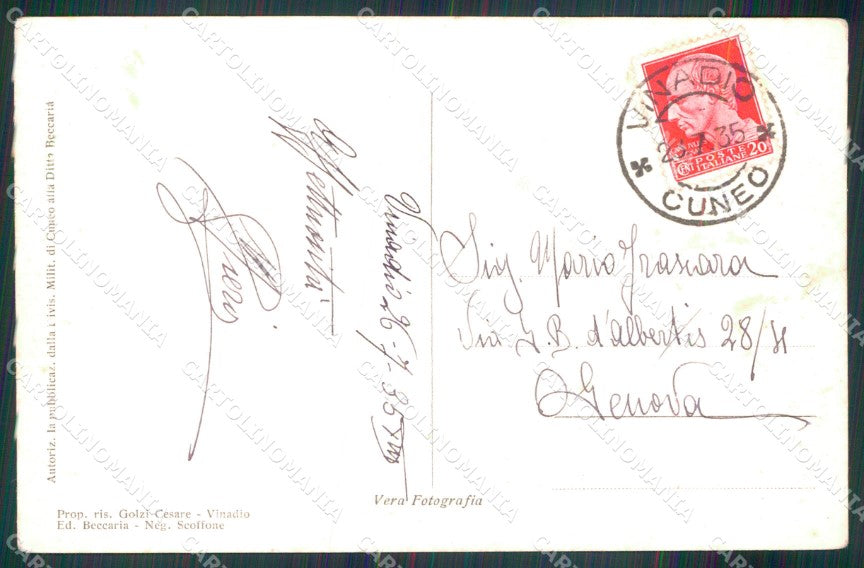 Autoriz. la pubblicaz. dalla Divis. Milit. di Cuneo alla Ditta Beccaria
Affettuosità.
Vinadio 26-7-35 XIII
VINADIO
CUNEO
POSTE
ITALIANE
CENT 20
Sig. Mario Frascara
Via G.B. d'Albertis 28/
Genova
Vera Fotografia
Prop. ris. Golzi Cesare - Vinadio
Ed. Beccaria - Neg. Scoffone
CARTOLINOMANIA